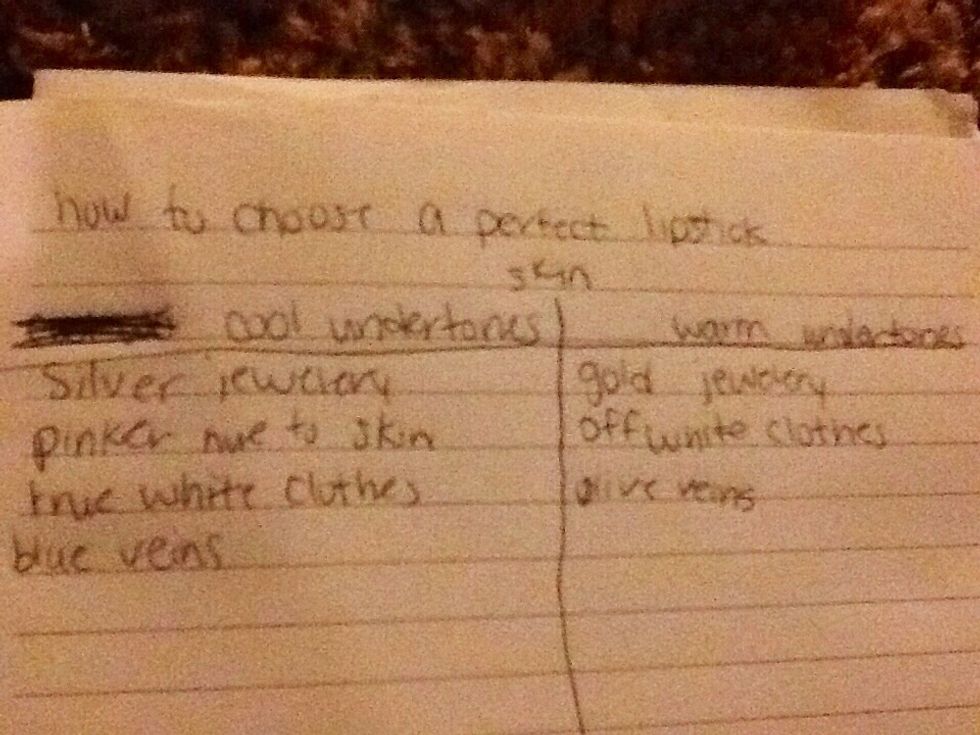 how to choose a perfect lipstick
skin
cool undertones
warm undertones
silver jewelery
gold jewelery
pinker hue to skin
off white clothes
true white clothes
olive veins
blue veins